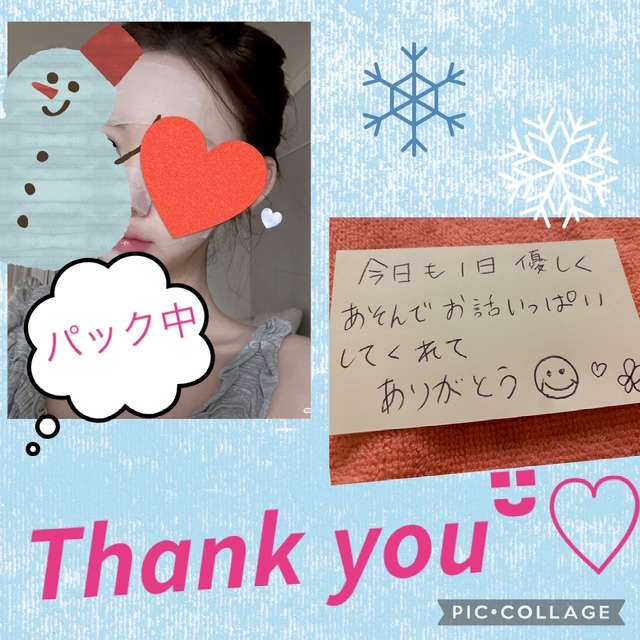 パック中
今日も1日優しく
あそんでお話いっぱい
してくれて
ありがとう
Thank you
PIC•COLLAGE